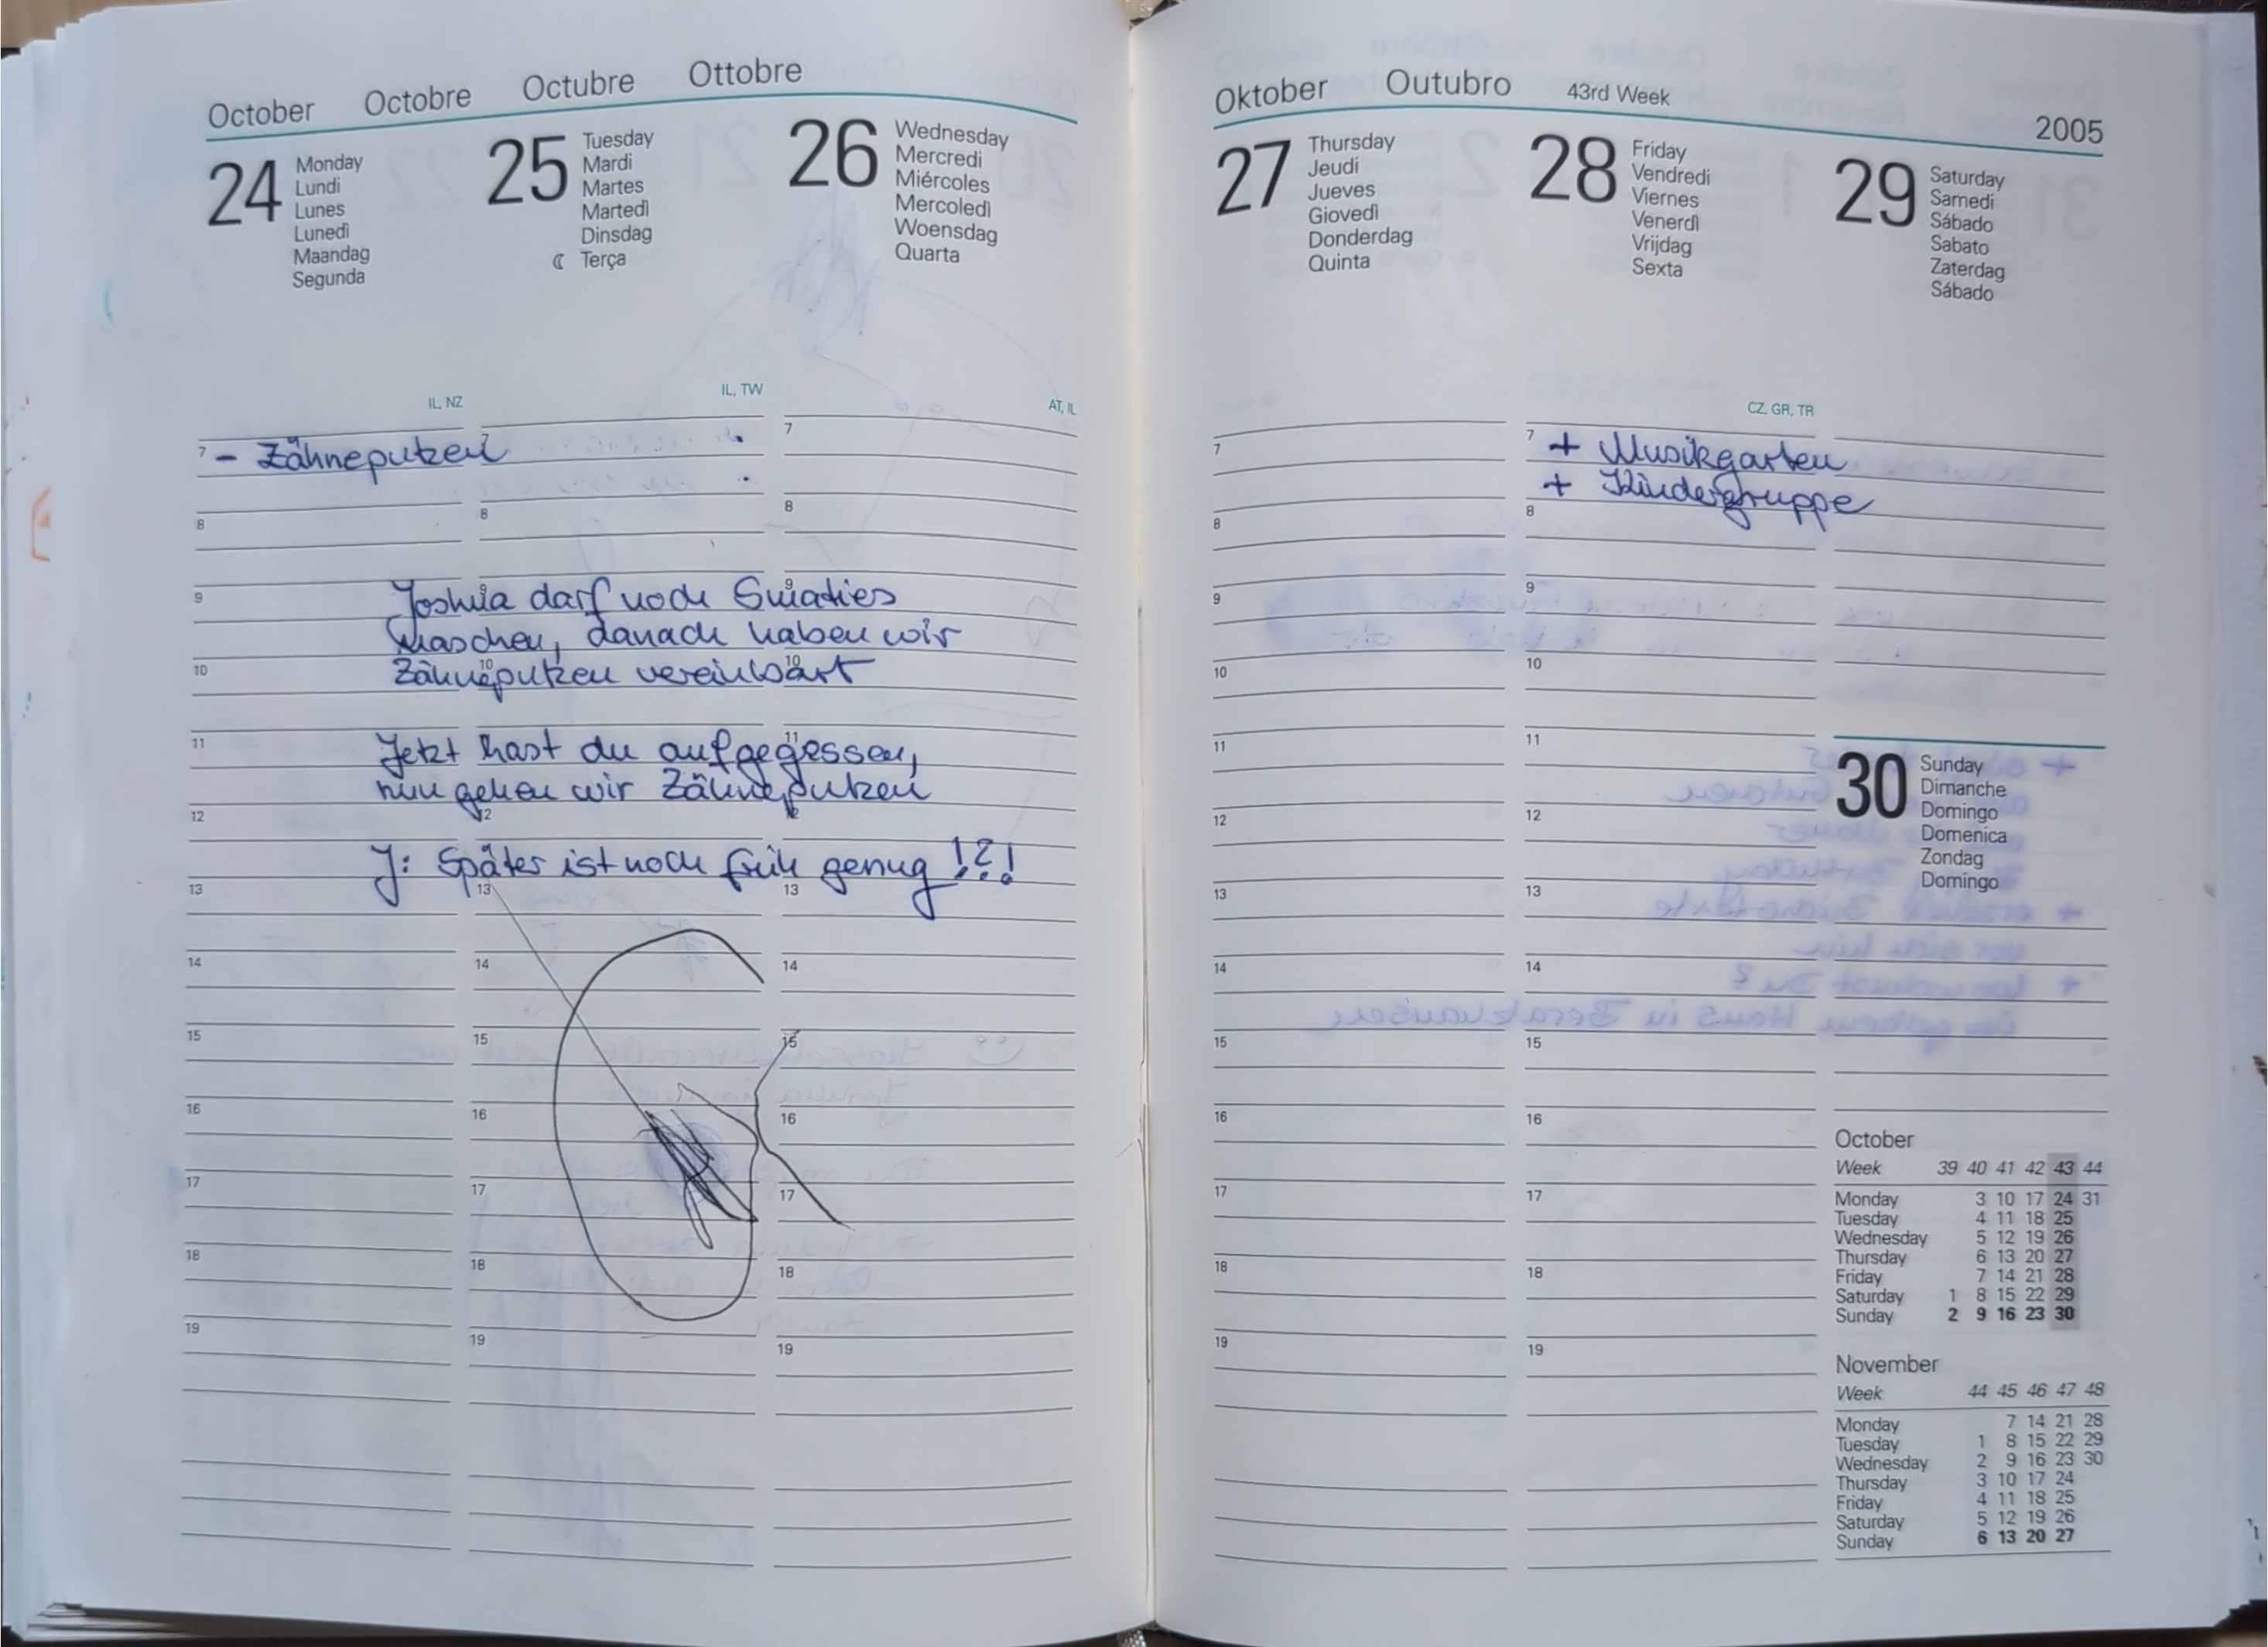 October Octobre Octubre Ottobre
24 Monday
Lundi
Lunes
Lunedì
Maandag
Segunda
25 Tuesday
Mardi
Martes
Martedì
Dinsdag
☾ Terça
26 Wednesday
Mercredi
Miércoles
Mercoledì
Woensdag
Quarta
IL, NZ
IL, TW
AT, IL
7 7 7
- Zähneputzen
8 8 8
9 9 9
Joshua darf noch Smaties
naschen, danach haben wir
10 10 10
Zähneputzen vereinbart
11 11
Jetzt hast du aufgegessen,
nun gehen wir Zähneputzen
12 12 12
J: Später ist noch früh genug !?!
13 13 13
14 14 14
15 15 15
16 16 16
17 17 17
18 18 18
19 19 19
Oktober Outubro 43rd Week
2005
27 Thursday
Jeudi
Jueves
Giovedì
Donderdag
Quinta
28 Friday
Vendredi
Viernes
Venerdì
Vrijdag
Sexta
29 Saturday
Samedi
Sábado
Sabato
Zaterdag
Sábado
CZ, GR, TR
7 7
+ Musikgarten
+ Kindergruppe
8 8
9 9
10 10
11 11
12 12
13 13
14 14
15 15
16 16
17 17
18 18
19 19
30 Sunday
Dimanche
Domingo
Domenica
Zondag
Domingo
October
Week 39 40 41 42 43 44
Monday 3 10 17 24 31
Tuesday 4 11 18 25
Wednesday 5 12 19 26
Thursday 6 13 20 27
Friday 7 14 21 28
Saturday 1 8 15 22 29
Sunday 2 9 16 23 30
November
Week 44 45 46 47 48
Monday 7 14 21 28
Tuesday 1 8 15 22 29
Wednesday 2 9 16 23 30
Thursday 3 10 17 24
Friday 4 11 18 25
Saturday 5 12 19 26
Sunday 6 13 20 27